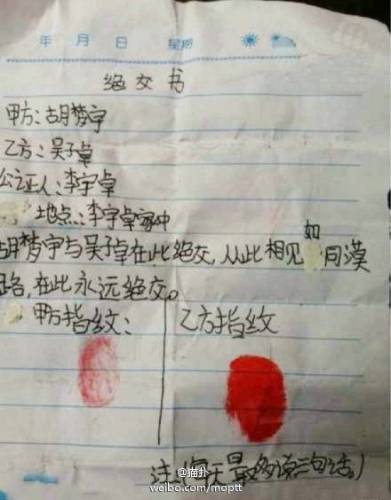 年 月 日 星期
绝交书
甲方：胡梦宇
乙方：吴子卓
公证人：李宇卓
地点：李宇卓家中
胡梦宇与吴子卓在此绝交，从此相见如同漠
路，在此永远绝交。
甲方指纹：
乙方指纹
注（每天最多领三句话）
@猫扑
weibo.com/moptt